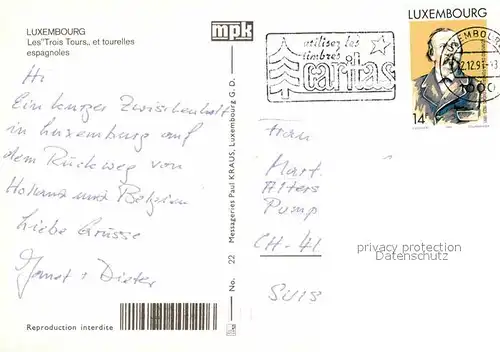 LUXEMBOURG
Les "Trois Tours„ et tourelles
espagnoles
mpk
utilisez les
timbres
caritas
LUXEMBOURG
14
Hi
Ein kurzer Zwischenhalt
in Luxemburg auf
dem Rückweg von
Holland und Belgien
Liebe Grüsse
+ Dieter
No. 22 Messageries Paul KRAUS, Luxembourg G. D.
Frau
Mart.
Alters
Pump
CH-41
SUIS
privacy protection
Datenschutz
Reproduction interdite